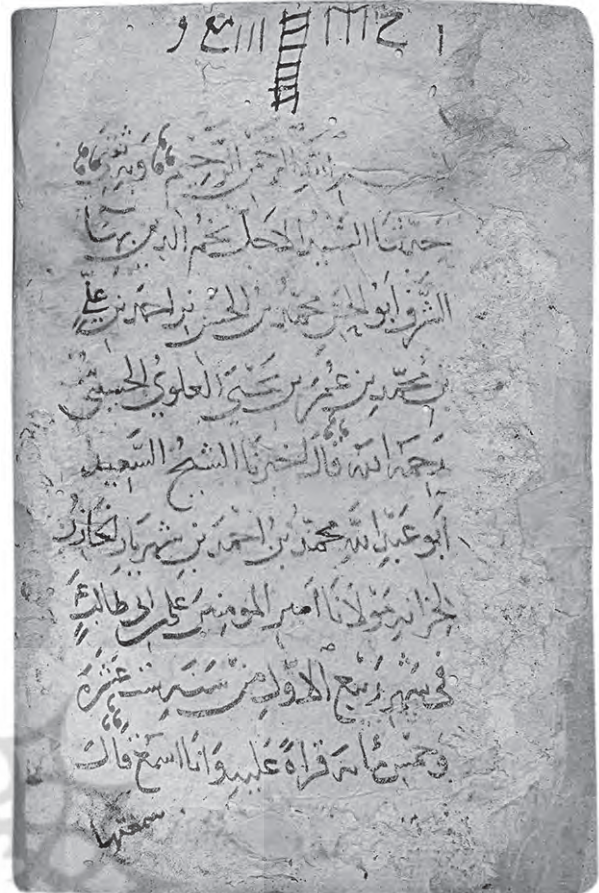 بسم الله الرحمن الرحيم وبه ثقتي
حدثنا السيد الاجل نجم الدين بهاء
الشرف ابو الحسن محمد بن الحسن بن احمد بن علي
بن محمد بن عمر بن يحيى العلوي الحسيني
رحمه الله قال اخبرنا الشيخ السعيد
ابو عبد الله محمد بن احمد بن شهريار الخازن
لخزانة مولانا امير المومنين علي بن ابي طالب ع
في شهر ربيع الاول من سنة ست عشرة
وخمس مائة قراءة عليه وانا اسمع قال
سمعتها